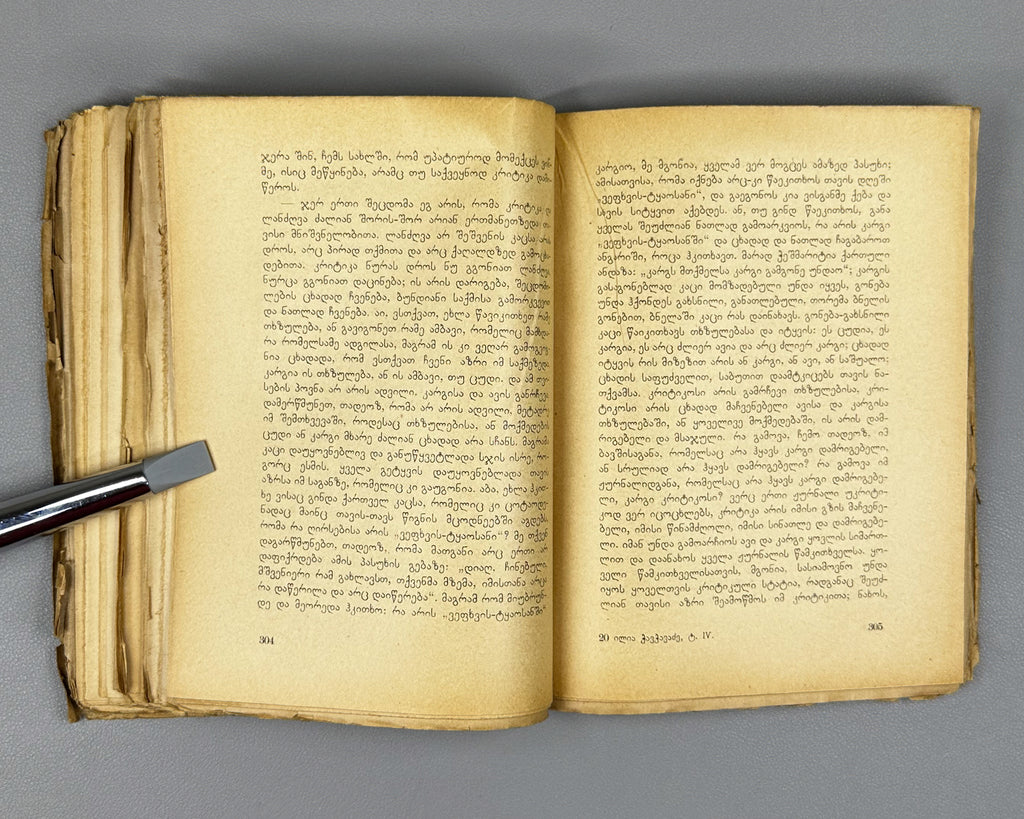 ჯერა შინ, ჩემს სახლში, რომ უპატიუროდ მომექცეს ვინ-
მე, ისიც მეწყინება, არამც თუ საქვეყნოდ კრიტიკა დამი-
წეროს.
— ჯერ ერთი შეცდომა ეგ არის, რომა კრიტიკა და
ლანძღვა ძალიან შორის-შორ არიან ერთმანეთზედა
ვისი მნიშვნელობითა. ლანძღვა არ შეშვენის კაცსა არას
დროს, არც პირად თქმითა და არც ქაღალდზედ გამოცხა-
დებითა. კრიტიკა ნურას დროს ნუ გგონიათ ლანძღვა,
ნურცა გგონიათ დაცინება; ის არის დარიგება, შეცდომი-
ლების ცხადად ჩვენება, ბუნდიანი საქმისა გამორკვევით
და ნათლად ჩვენება. აი, ვსთქვათ, ეხლა წავიკითხეთ რამე
თხზულება, ან გავიგონეთ რამე ამბავი, რომელიც
რა რომელსამე ადგილასა, მაგრამ ის კი ვეღარ
ნია ცხადადა, რომ ვსთქვათ ჩვენი აზრი იმ საქმეზედა:
კარგია ის თხზულება, ან ის ამბავი, თუ ცუდი. და ამ თვი-
სების პოვნა არ არის ადვილი. კარგისა და ავის განრჩევა,
დამერწმუნეთ, თადეოზ, რომა არ არის ადვილი, მეტადრე
იმ შემთხვევაში, როდესაც თხზულებისა, ან მოქმედების
ცუდი ან კარგი მხარე ძალიან ცხადად არა სჩანს. მაგრამა
კაცი დაუყოვნებლივ და განუწყვეტლადა სჯის ისრე, რო-
გორც ესმის. ყველა გეტყვის დაუყოვნებლადა თავის
აზრსა იმ საგანზე, რომელიც კი გაუგონია. აბა, ეხლა ჰკით-
ხე ვისაც გინდა ქართველ კაცსა, რომელიც კი ცოტაოდე-
ნადაც მაინც თავის-თავს წიგნის მცოდნეებში აგდებს,
რომა რა ღირსებისა არის „ვეფხვის-ტყაოსანი“? მე თქვენ
დაგარწმუნებთ, თადეოზ, რომა მათგანი არც ერთი არ
დაფიქრდება ამის პასუხის გებაზე: „დიაღ, ჩინებული,
მშვენიერი რამ გახლავსთ, თქვენმა მზემა, იმისთანა არცა
რა დაწერილა და არც დაიწერება“. მაგრამ რომ მიუბრუნ-
დე და მეორედა ჰკითხო: რა არის „ვეფხვის-ტყაოსანში“
304
კარგიო, მე მგონია, ყველამ ვერ მოგცეს ამაზედ პასუხი;
ამისათვისა, რომა იქნება არც-კი წაეკითხოს თავის დღეში
„ვეფხვის-ტყაოსანი“, და გაეგონოს კია ვისგანმე ქება და
სხვის სიტყვით აქებდეს. ან, თუ გინდ წაეკითხოს, განა
ყველას შეუძლიან ნათლად გამოარკვიოს, რა არის კარგი
„ვეფხვის-ტყაოსანში“ და ცხადად და ნათლად ჩაგაბაროთ
ანგრიში, როცა ჰკითხავთ. მარად ჭეშმარიტია ქართული
ანდაზა: „კარგს მთქმელსა კარგი გამგონე უნდაო“; კარგის
გასაგონებლად კაცი მომზადებული უნდა იყვეს, გონება
უნდა ჰქონდეს გახსნილი, განათლებული, თორემა ბნელის
გონებით, ბნელაში კაცი რას დაინახავს. გონება-გახსნილი
კაცი წაიკითხავს თხზულებასა და იტყვის: ეს ცუდია, ეს
კარგია, ეს არც ძლიერ ავია და არც ძლიერ კარგი; ცხადად
იტყვის რის მიზეზით არის ან კარგი, ან ავი, ან საშუალო;
ცხადის საფუძველით, საბუთით დაამტკიცებს თავის ნა-
თქვამსა. კრიტიკოსი არის გამრჩევი თხზულებისა, კრი-
ტიკოსი არის ცხადად მაჩვენებელი ავისა და კარგისა
თხზულებაში, ან ყოველივე მოქმედებაში, ის არის დამ-
რიგებელი და მსაჯული. რა გამოვა, ჩემო თადეოზ, იმ
ბავშვისაგანა, რომელსაც არა ჰყავს კარგი დამრიგებელი,
ან სრულიად არა ჰყავს დამრიგებელი? რა გამოვა იმ
ჟურნალიდგანა, რომელსაც არა ჰყავს კარგი დამრიგებე-
ლი, კარგი კრიტიკოსი? ვერც ერთი ჟურნალი უკრიტი-
კოდ ვერ იცოცხლებს, კრიტიკა არის იმისი გზის მაჩვენე-
ბელი, იმისი წინამძღოლი, იმისი სინათლე და დამრიგებე-
ლი. იმან უნდა გამოარჩიოს ავი და კარგი ყოვლის სიმართ-
ლით და დაანახოს ყველა ჟურნალის წამკითხველსა. ყო-
ველი წამკითხველისათვის, მგონია, სასიამოვნო უნდა
იყოს ყოველთვის კრიტიკული სტატია, რადგანაც შეუძ-
ლიან თავისი აზრი შეამოწმოს იმ კრიტიკითა; ნახოს,
20 ილია ჭავჭავაძე, ტ. IV.
305